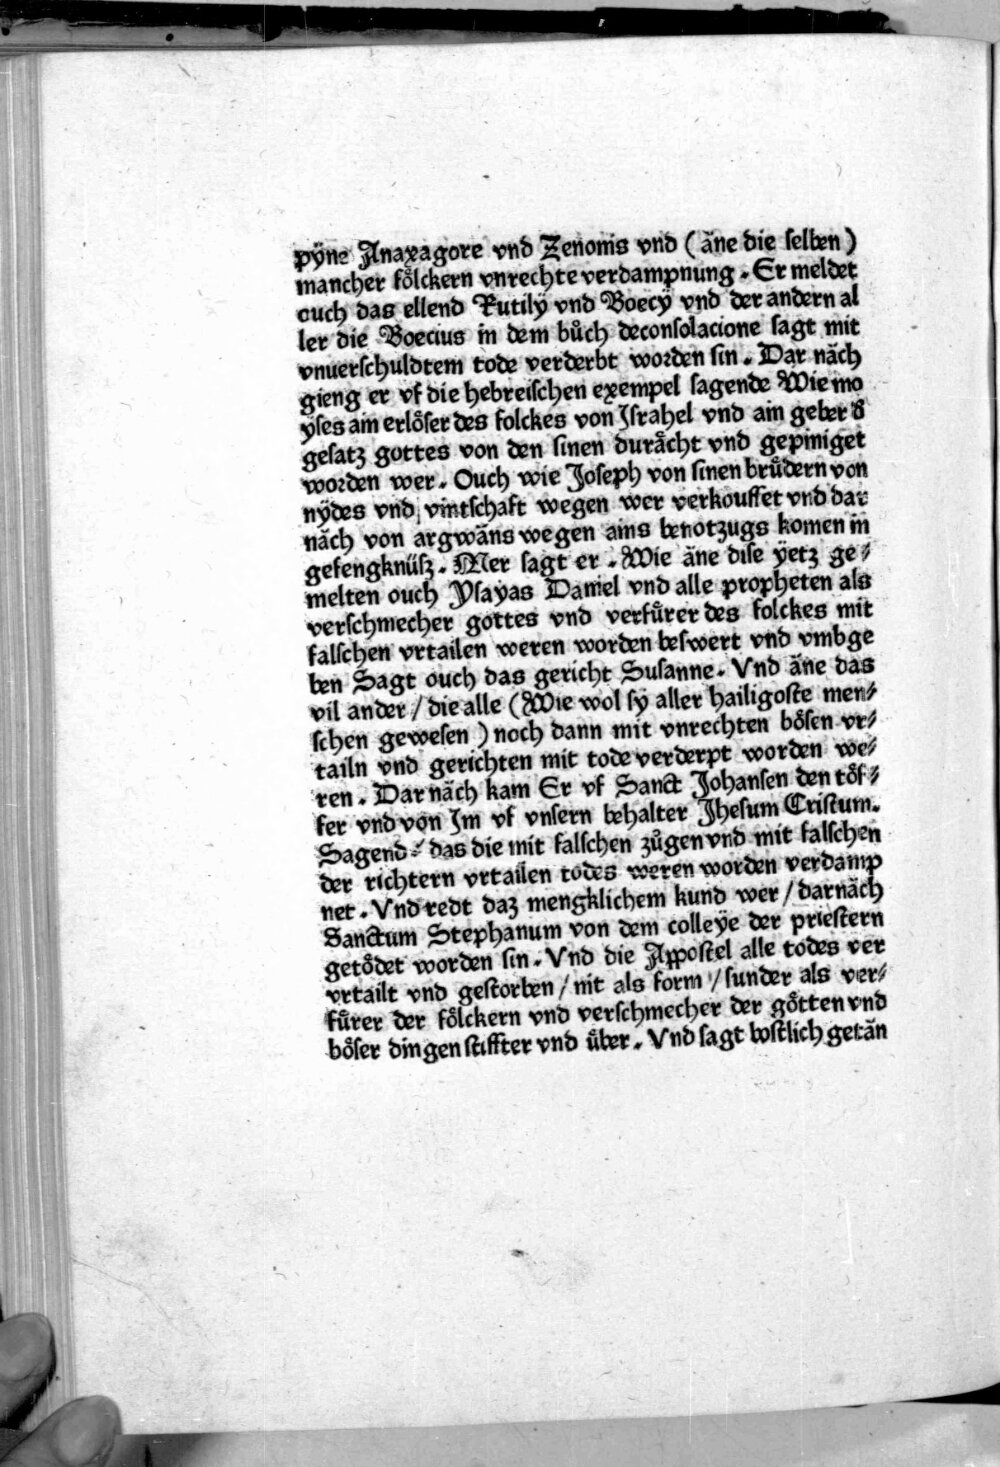 pÿne Anaxagore vnd Zenonis vnd (äne die selben)
mancher fölckern vnrechte verdampnung. Er meldet
ouch das ellend Rutilÿ vnd Boecÿ vnd der andern al
ler die Boecius in dem bůch deconsolacione sagt mit
vnuerschuldtem tode verderbt worden sin. Dar näch
gieng er vf die hebreischen exempel sagende Wie mo
yses ain erlöser des folckes von Israhel vnd ain geber d'
gesatz gottes von den sinen durächt vnd gepiniget
worden wer. Ouch wie Joseph von sinen brůdern von
nÿdes vnd vintschaft wegen wer verkouffet vnd dar
näch von argwäns wegen ains benotzugs komen in
gefengknüsz. Mer sagt er. Wie äne dise ÿetz ge⸗
melten ouch Ysayas Daniel vnd alle propheten als
verschmecher gottes vnd verfůrer des folckes mit
falschen vrtailen weren worden beswert vnd vmbge
ben Sagt ouch das gericht Susanne. Vnd äne das
vil ander / die alle (Wie wol sy aller hailigoste men⸗
schen gewesen) noch dann mit vnrechten bösen vr⸗
tailn vnd gerichten mit tode verderpt worden we⸗
ren. Dar näch kam Er vf Sanct Johansen den töf⸗
fer vnd von Im vf vnsern behalter Jhesum Cristum.
Sagend⸗ das die mit falschen zůgen vnd mit falschen
der richtern vrtailen todes weren worden verdamp
net. Vnd redt daz mengklichem kund wer / darnäch
Sanctum Stephanum von dem colleÿe der priestern
getödet worden sin. Vnd die Appostel alle todes ver
vrtailt vnd gestorben / nit als form / sunder als ver⸗
fůrer der fölckern vnd verschmecher der götten vnd
böser dingen stiffter vnd ůber. Vnd sagt bostlich getän